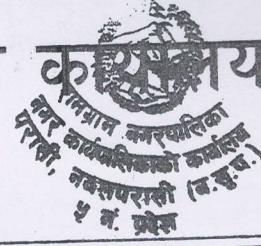 कार्यालय
रामग्राम नगरपालिका
नगर कार्यपालिकाको कार्यालय
परासी, नवलपरासी (ब.सु.प.)
५ नं. प्रदेश